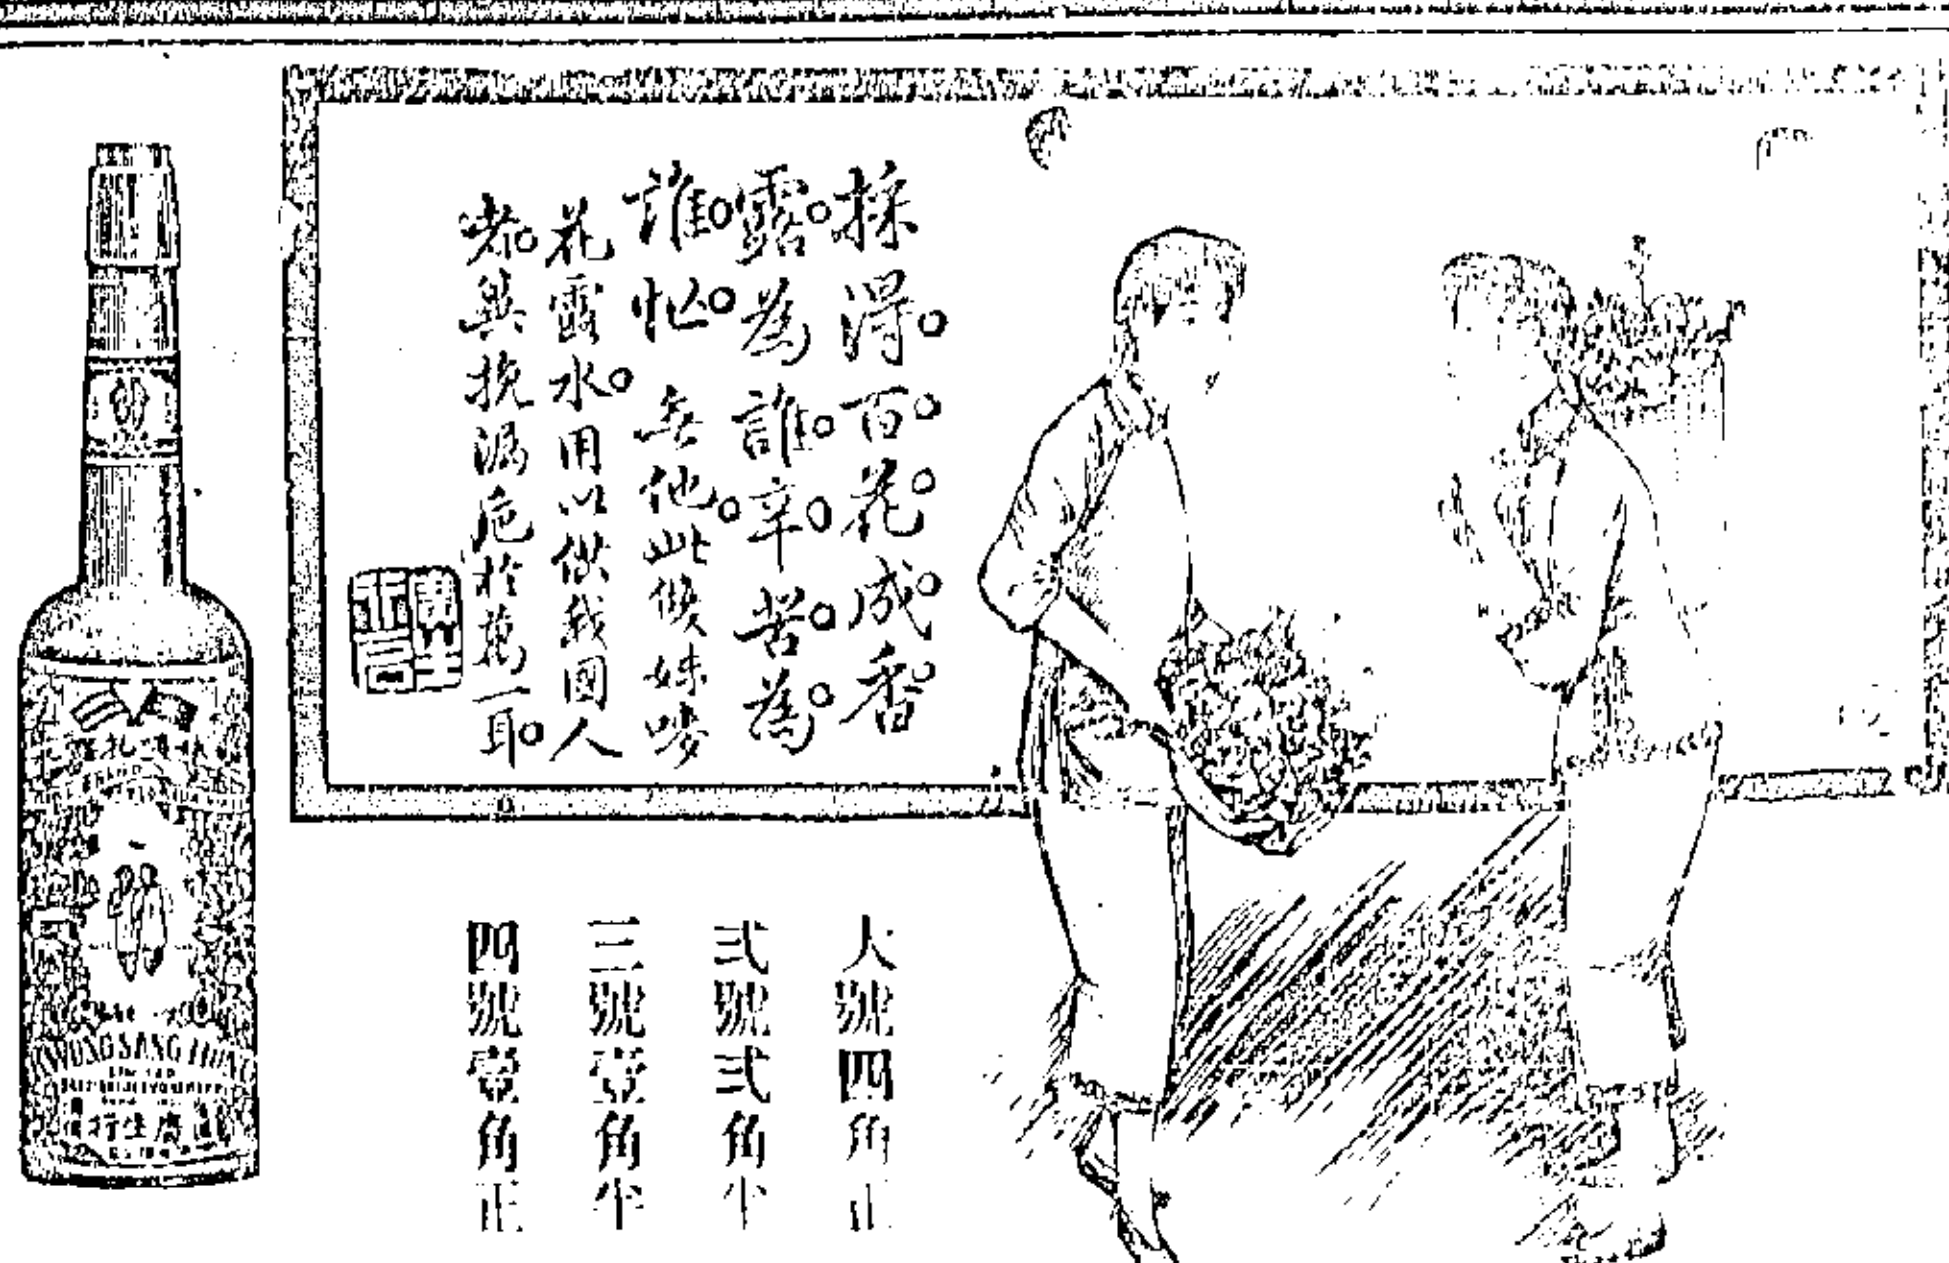 採得。百。花。成。香。
露。為誰。辛。苦。為。
誰。忙。無他。此雙妹嘜
花露水。用以供我國人
嗜。冀挽漏巵於萬一耳。
大號四角正
弍號弍角半
三號壹角半
四號壹角正
KWONG SANG HONG
行生廣